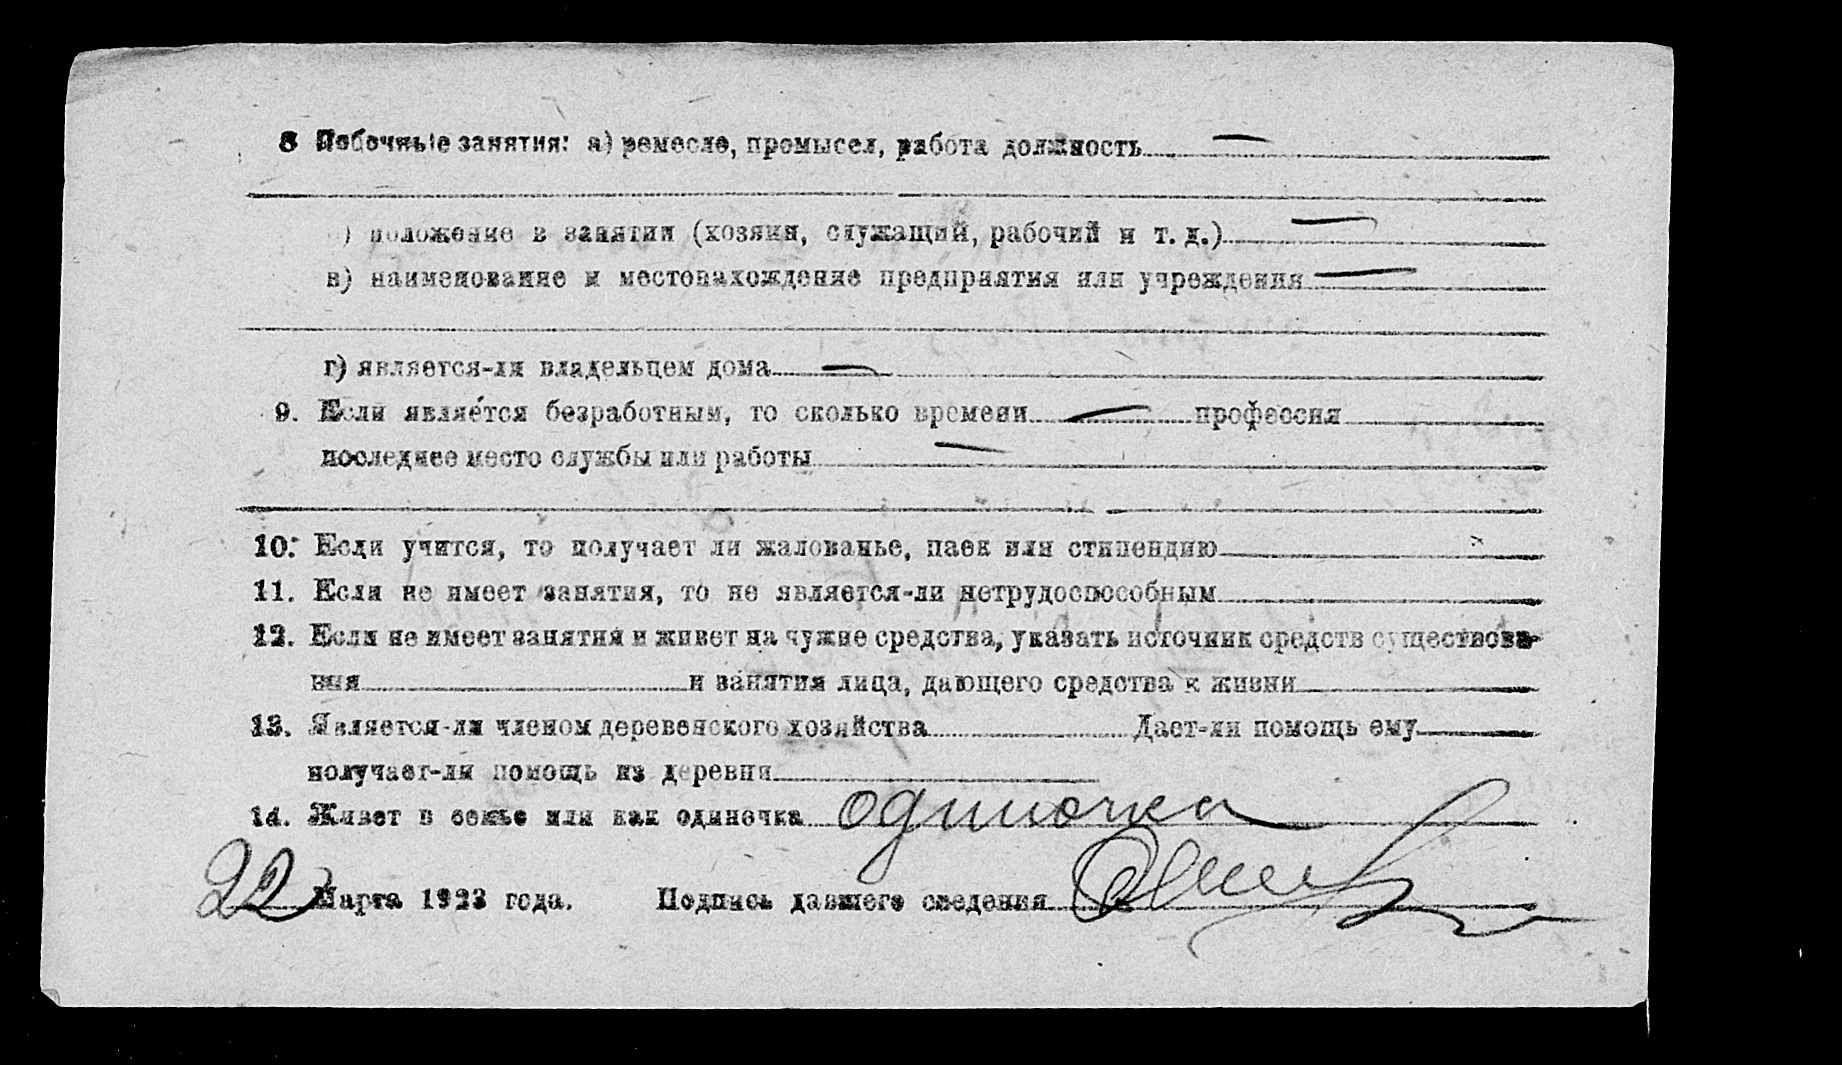 8 Побочные занятия: а) ремесло, промысел, работа должность —
) положение в занятии (хозяин, служащий, рабочий и т. д.) —
в) наименование и местонахождение предприятия или учреждения —
г) является-ли владельцем дома —
9. Если является безработным, то сколько времени — профессия
последнее место службы или работы —
10. Если учится, то получает ли жалованье, паек или стипендию
11. Если не имеет занятия, то не является-ли нетрудоспособным
12. Если не имеет занятия и живет на чужие средства, указать источник средств существова-
ния и занятия лица, дающего средства к жизни
13. Является-ли членом деревенского хозяйства Дает-ли помощь ему
получает-ли помощь из деревни
14. Живет в семье или как одиночка одиночка
22 Марта 1923 года. Подпись давшего сведения